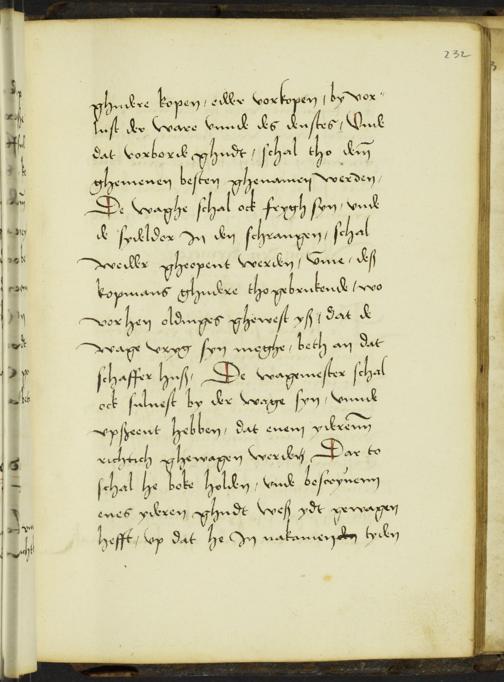 232
ghudere kopen, edder vorkopen, by vor-
lust der ware vnnde des denstes, Vnde
dat vorborde ghudt, schal tho dem
ghemenen besten ghenamen werden,
De waghe schal ock frygh syn, vnde
de sydeldor In den schrangen, schal
wedder gheopent werden, vme, des
kopmans ghudere tho gebrukende, wo
vorhen oldinges ghewest ys, dat de
wage vryg syn moghe, beth an dat
schaffer huß, De wagemester schal
ock suluest by der wage syn, vnnde
vpseent hebben, dat enem yderenn
richtich ghewagen werde, Dar to
schal he boke holden, vnde bescryuenn
enes yderen ghudt weß ydt gewagen
hefft, vp dat he In nakamen tyden